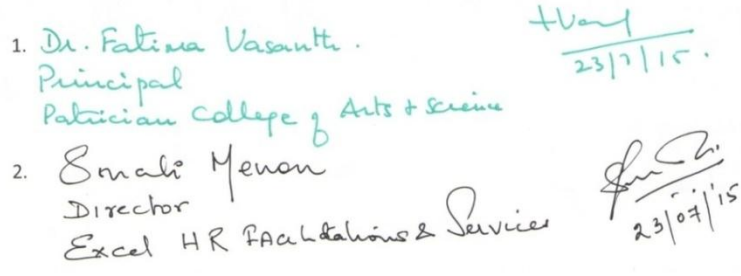 1. Dr. Fatima Vasanth.
Principal
Patrician College of Arts & Science
23/7/15.
2. Menon
Director
Excel HR Facilitations & Services
23/07/15